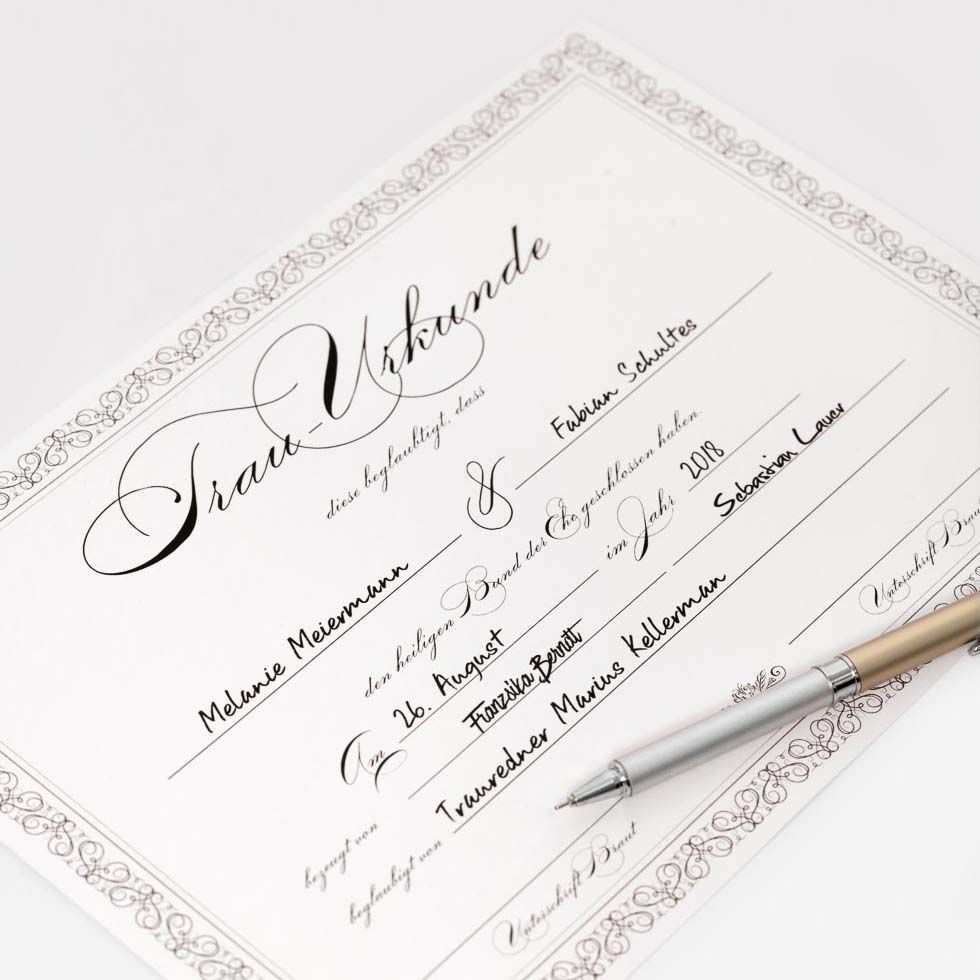 Trau-Urkunde
diese beglaubtigt, dass
Melanie Meiermann & Fabian Schultes
den heiligen Bund der Ehe geschlossen haben.
Am 26. August im Jahr 2018
bezeugt von Franzsika Bernatt Sebastian Lauer
beglaubigt von Trauredner Marius Kellerman
Unterschrift Braut Unterschrift Braut